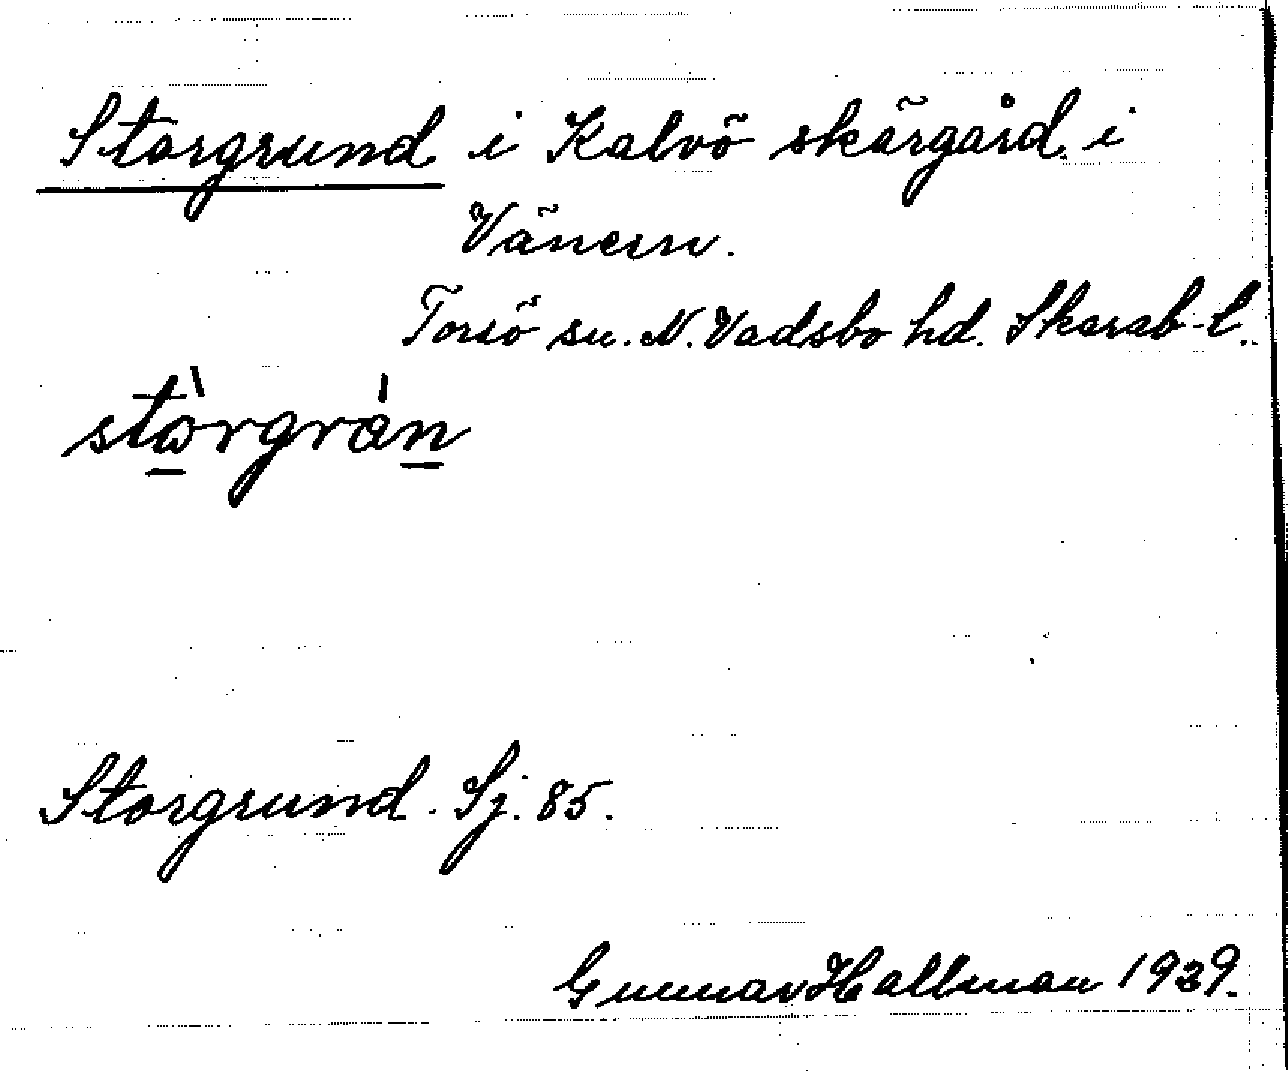 Storgrund i Kalvö skärgård i
Vänern.
Torsö sn. N. Vadsbo hd. Skarab. l.
stɷ̀rgràn
Storgrund. Sj. 85.
Gunnar Hallman 1939.